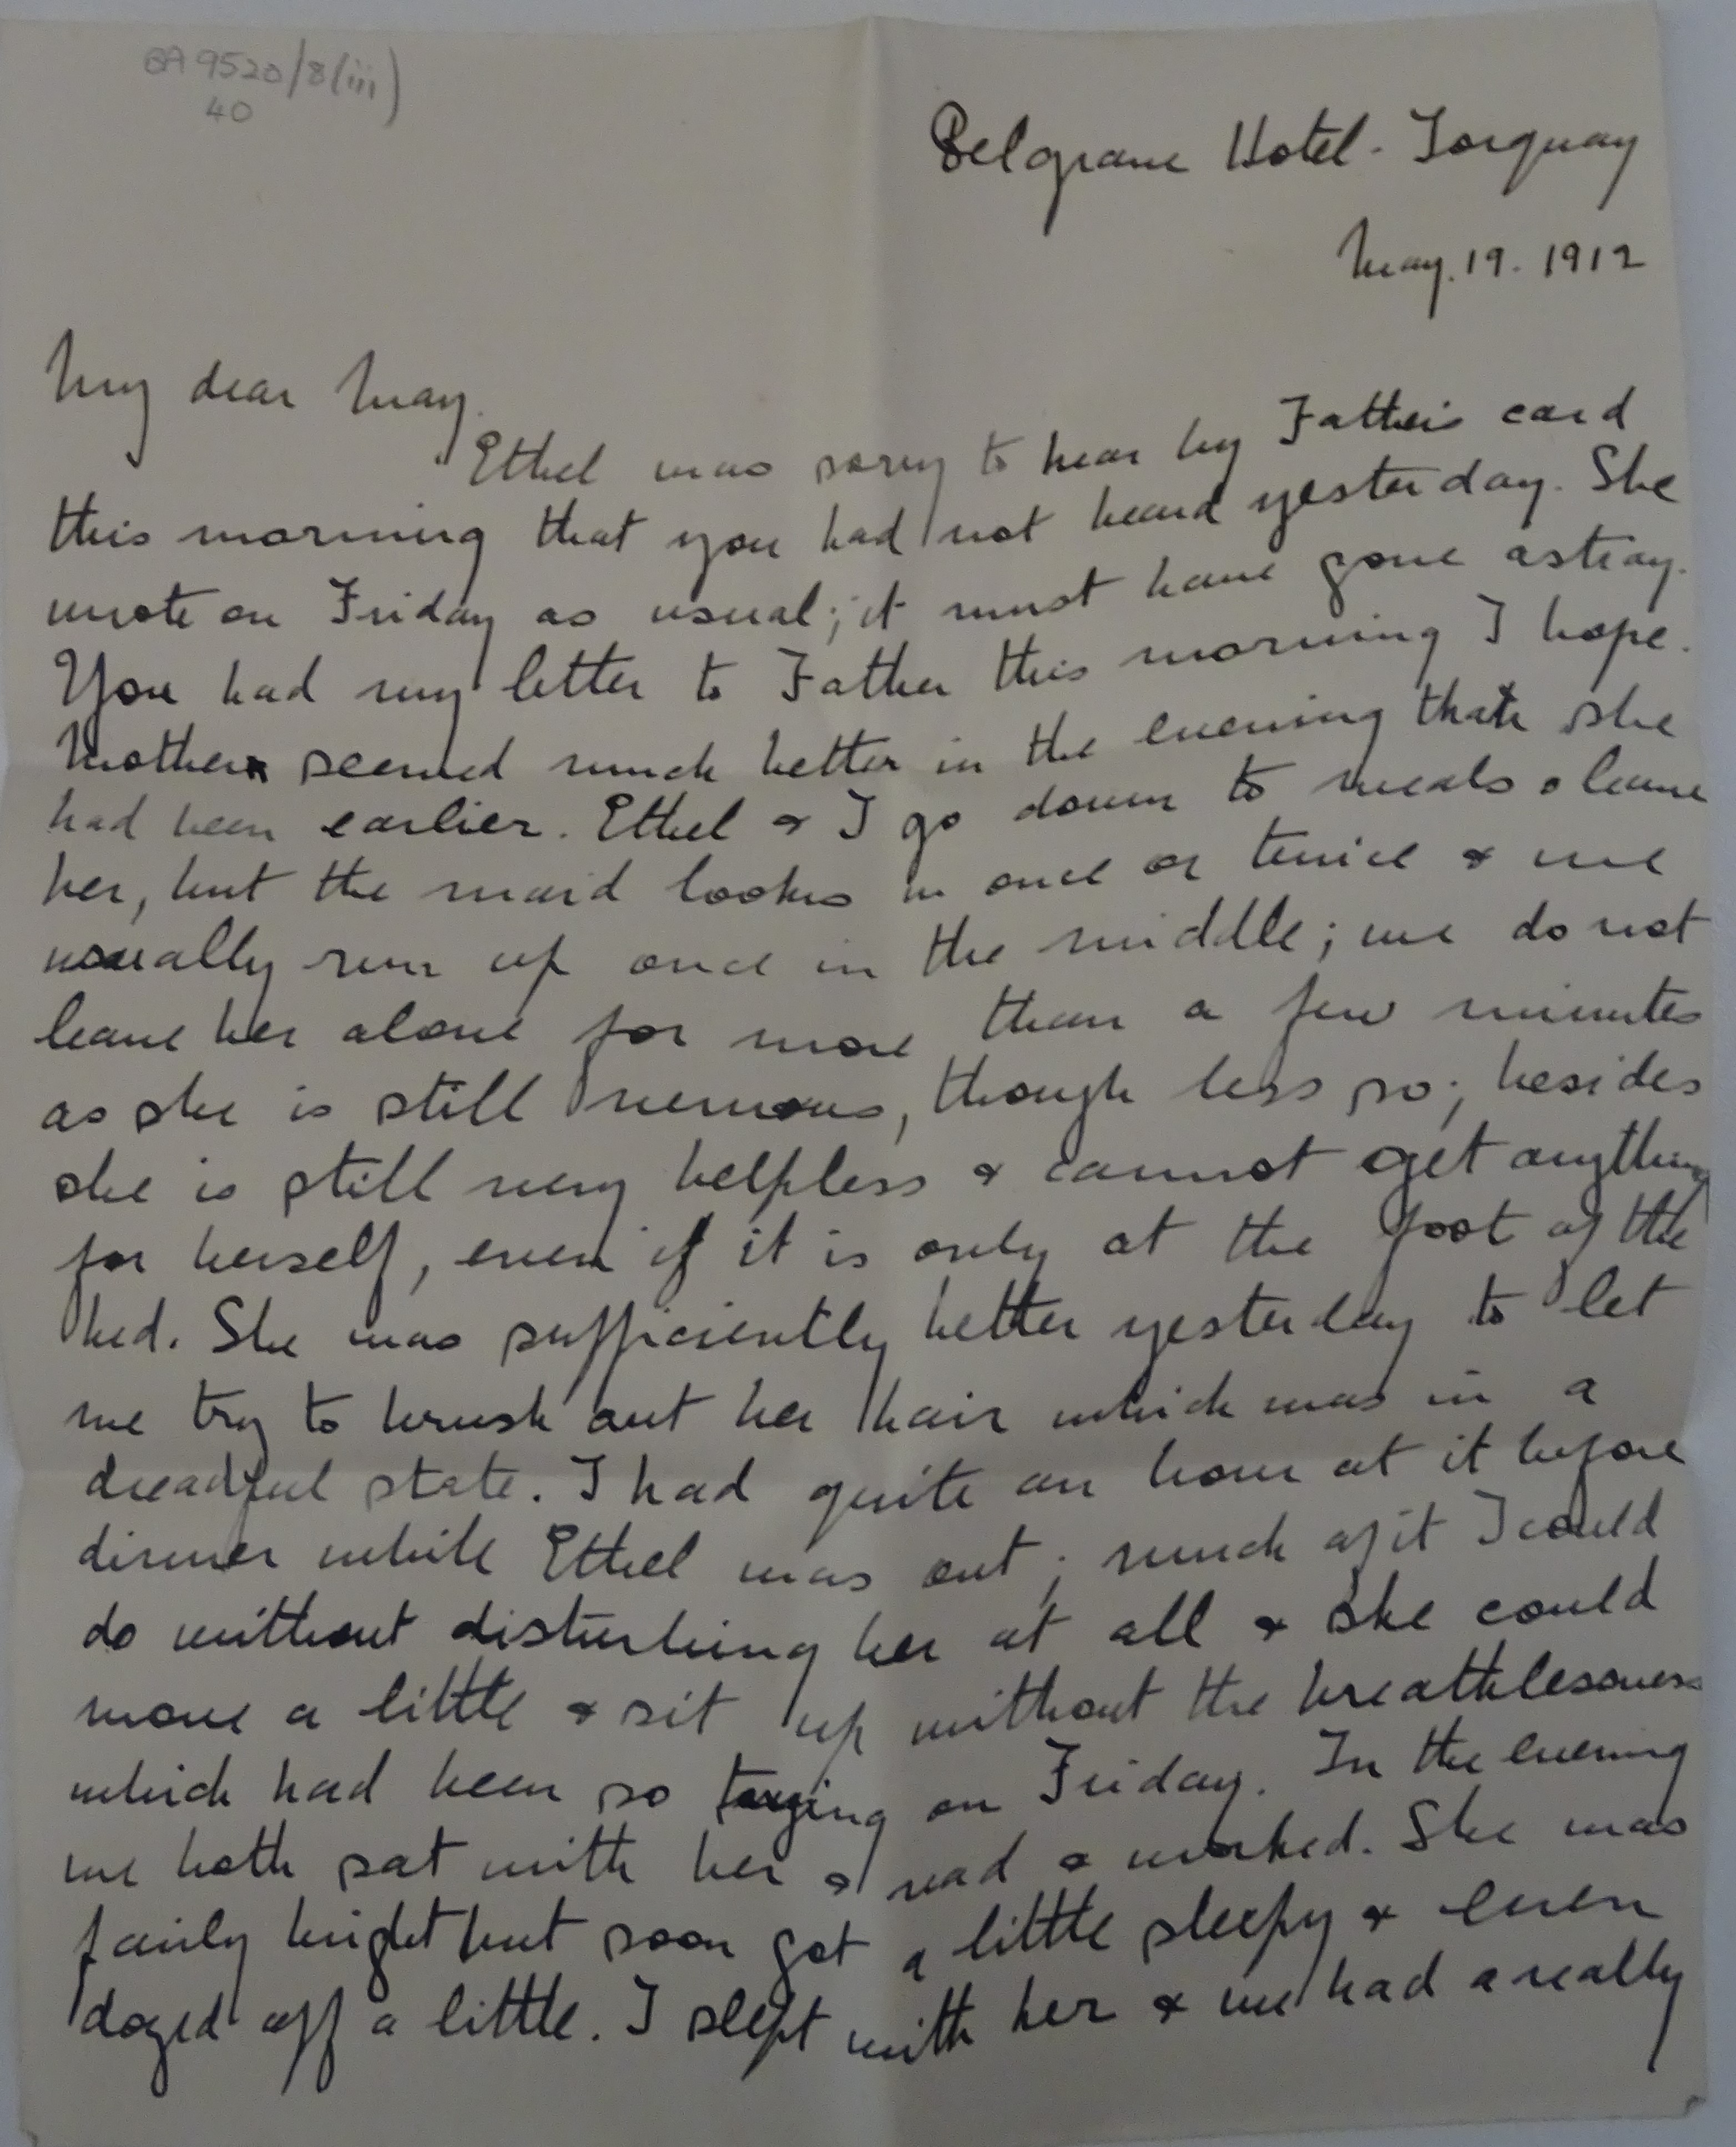 GA 9520/8(iii)
40
Belgrave Hotel. Torquay
May. 19. 1912
My dear May.
Ethel was sorry to hear by Father's card
this morning that you had not heard yesterday. She
wrote on Friday as usual; it must have gone astray.
You had my letter to Father this morning I hope.
Mother seemed much better in the evening than she
had been earlier. Ethel & I go down to meals & leave
her, but the maid looks in once or twice & we
usually run up once in the middle; we do not
leave her alone for more than a few minutes
as she is still nervous, though less so; besides
she is still very helpless & cannot get anything
for herself, even if it is only at the foot of the
bed. She was sufficiently better yesterday to let
me try to brush out her hair which was in a
dreadful state. I had quite an hour at it before
dinner while Ethel was out; much of it I could
do without disturbing her at all & she could
move a little & sit up without the breathlessness
which had been so trying on Friday. In the evening
we both sat with her & read & worked. She was
fairly bright but soon got a little sleepy & even
dozed off a little. I slept with her & we had a really